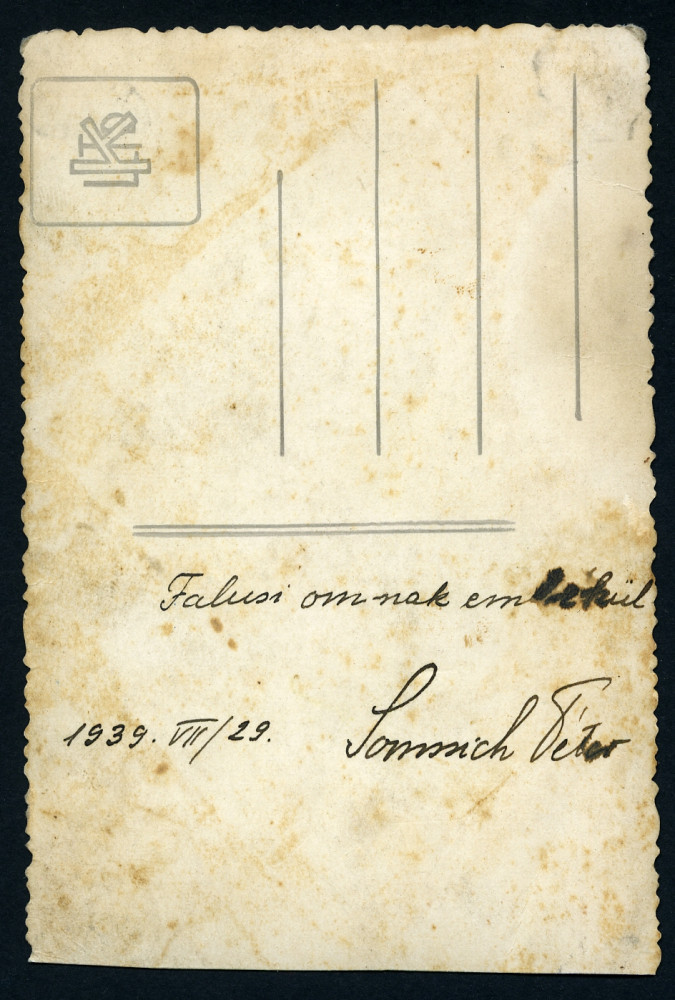 Falusi om-nak emlékül
1939. VII/29. Somssich Péter